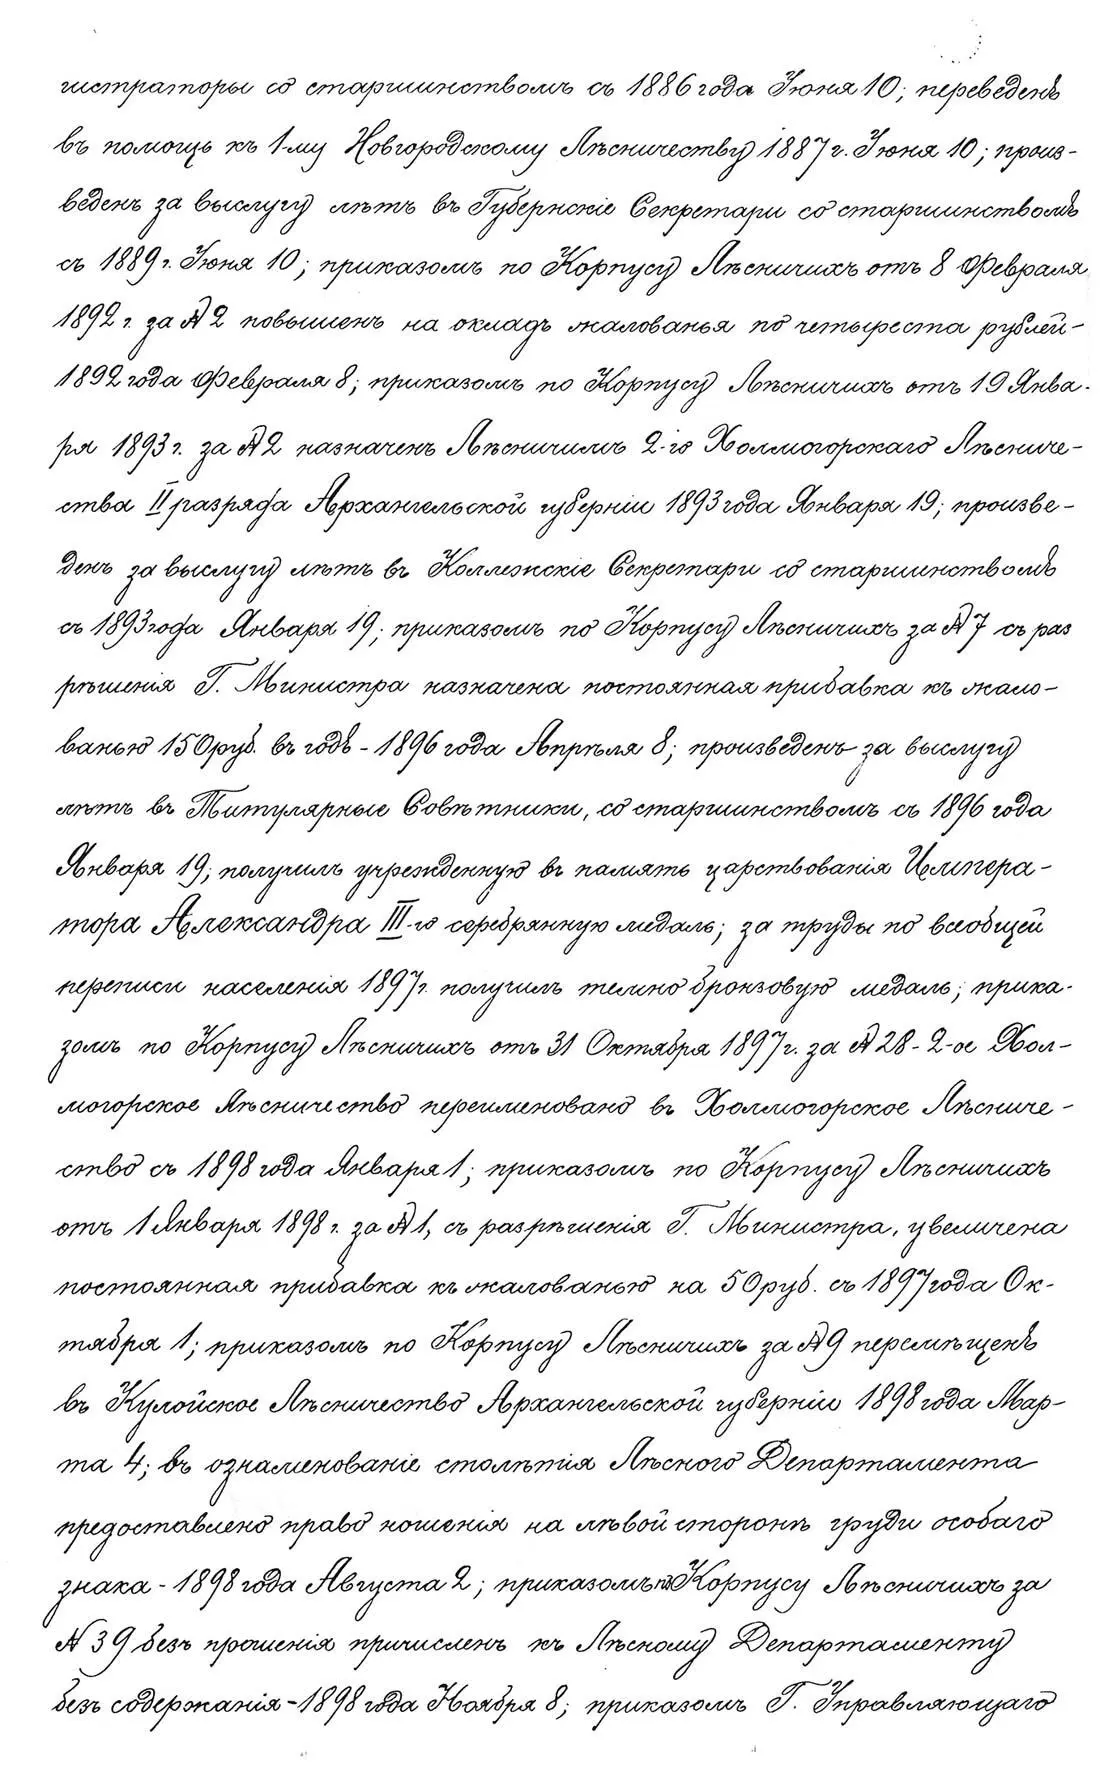 гистраторы со старшинствомъ съ 1886 года Іюня 10; переведенъ
въ помощь къ 1-му Новгородскому Лѣсничеству 1887 г. Іюня 10; произ-
веденъ за выслугу лѣтъ въ Губернскіе Секретари со старшинствомъ
съ 1889 г. Іюня 10; приказомъ по Корпусу Лѣсничихъ отъ 8 Февраля
1892 г. за № 2 повышенъ на окладъ жалованья по четыреста рублей-
1892 года Февраля 8; приказомъ по Корпусу Лѣсничихъ отъ 19 Янва-
ря 1893 г. за № 2 назначенъ Лѣсничимъ 2-го Холмогорскаго Лѣсниче-
ства II разряда Архангельской губерніи 1893 года Января 19; произве-
денъ за выслугу лѣтъ въ Коллежскіе Секретари со старшинствомъ
съ 1893 года Января 19; приказомъ по Корпусу Лѣсничихъ за № 7 съ раз
рѣшенія Г. Министра назначена постоянная прибавка къ жало-
ванью 150 руб. въ годъ - 1896 года Апрѣля 8; произведенъ за выслугу
лѣтъ въ Титулярные Совѣтники, со старшинствомъ съ 1896 года
Января 19; получилъ учрежденную въ память царствованія Импера-
тора Александра III-го серебрянную медаль; за труды по всеобщей
переписи населенія 1897 г. получилъ темно бронзовую медаль; прика-
зомъ по Корпусу Лѣсничихъ отъ 31 Октября 1897 г. за № 28 - 2-ое Хол-
могорское Лѣсничество переименовано въ Холмогорское Лѣсниче-
ство съ 1898 года Января 1; приказомъ по Корпусу Лѣсничихъ
отъ 1 Января 1898 г. за № 1, съ разрѣшенія Г. Министра, увеличена
постоянная прибавка къ жалованью на 50 руб. съ 1897 года Ок-
тября 1; приказомъ по Корпусу Лѣсничихъ за № 9 перемѣщенъ
въ Кулойское Лѣсничество Архангельской губерніи 1898 года Мар-
та 4; въ ознаменованіе столѣтія Лѣсного Департамента
предоставлено право ношенія на лѣвой сторонѣ груди особаго
знака - 1898 года Августа 2; приказомъ по Корпусу Лѣсничихъ за
№ 39 безъ прошенія причисленъ къ Лѣсному Департаменту
безъ содержанія - 1898 года Ноября 8; приказомъ Г. Управляющаго